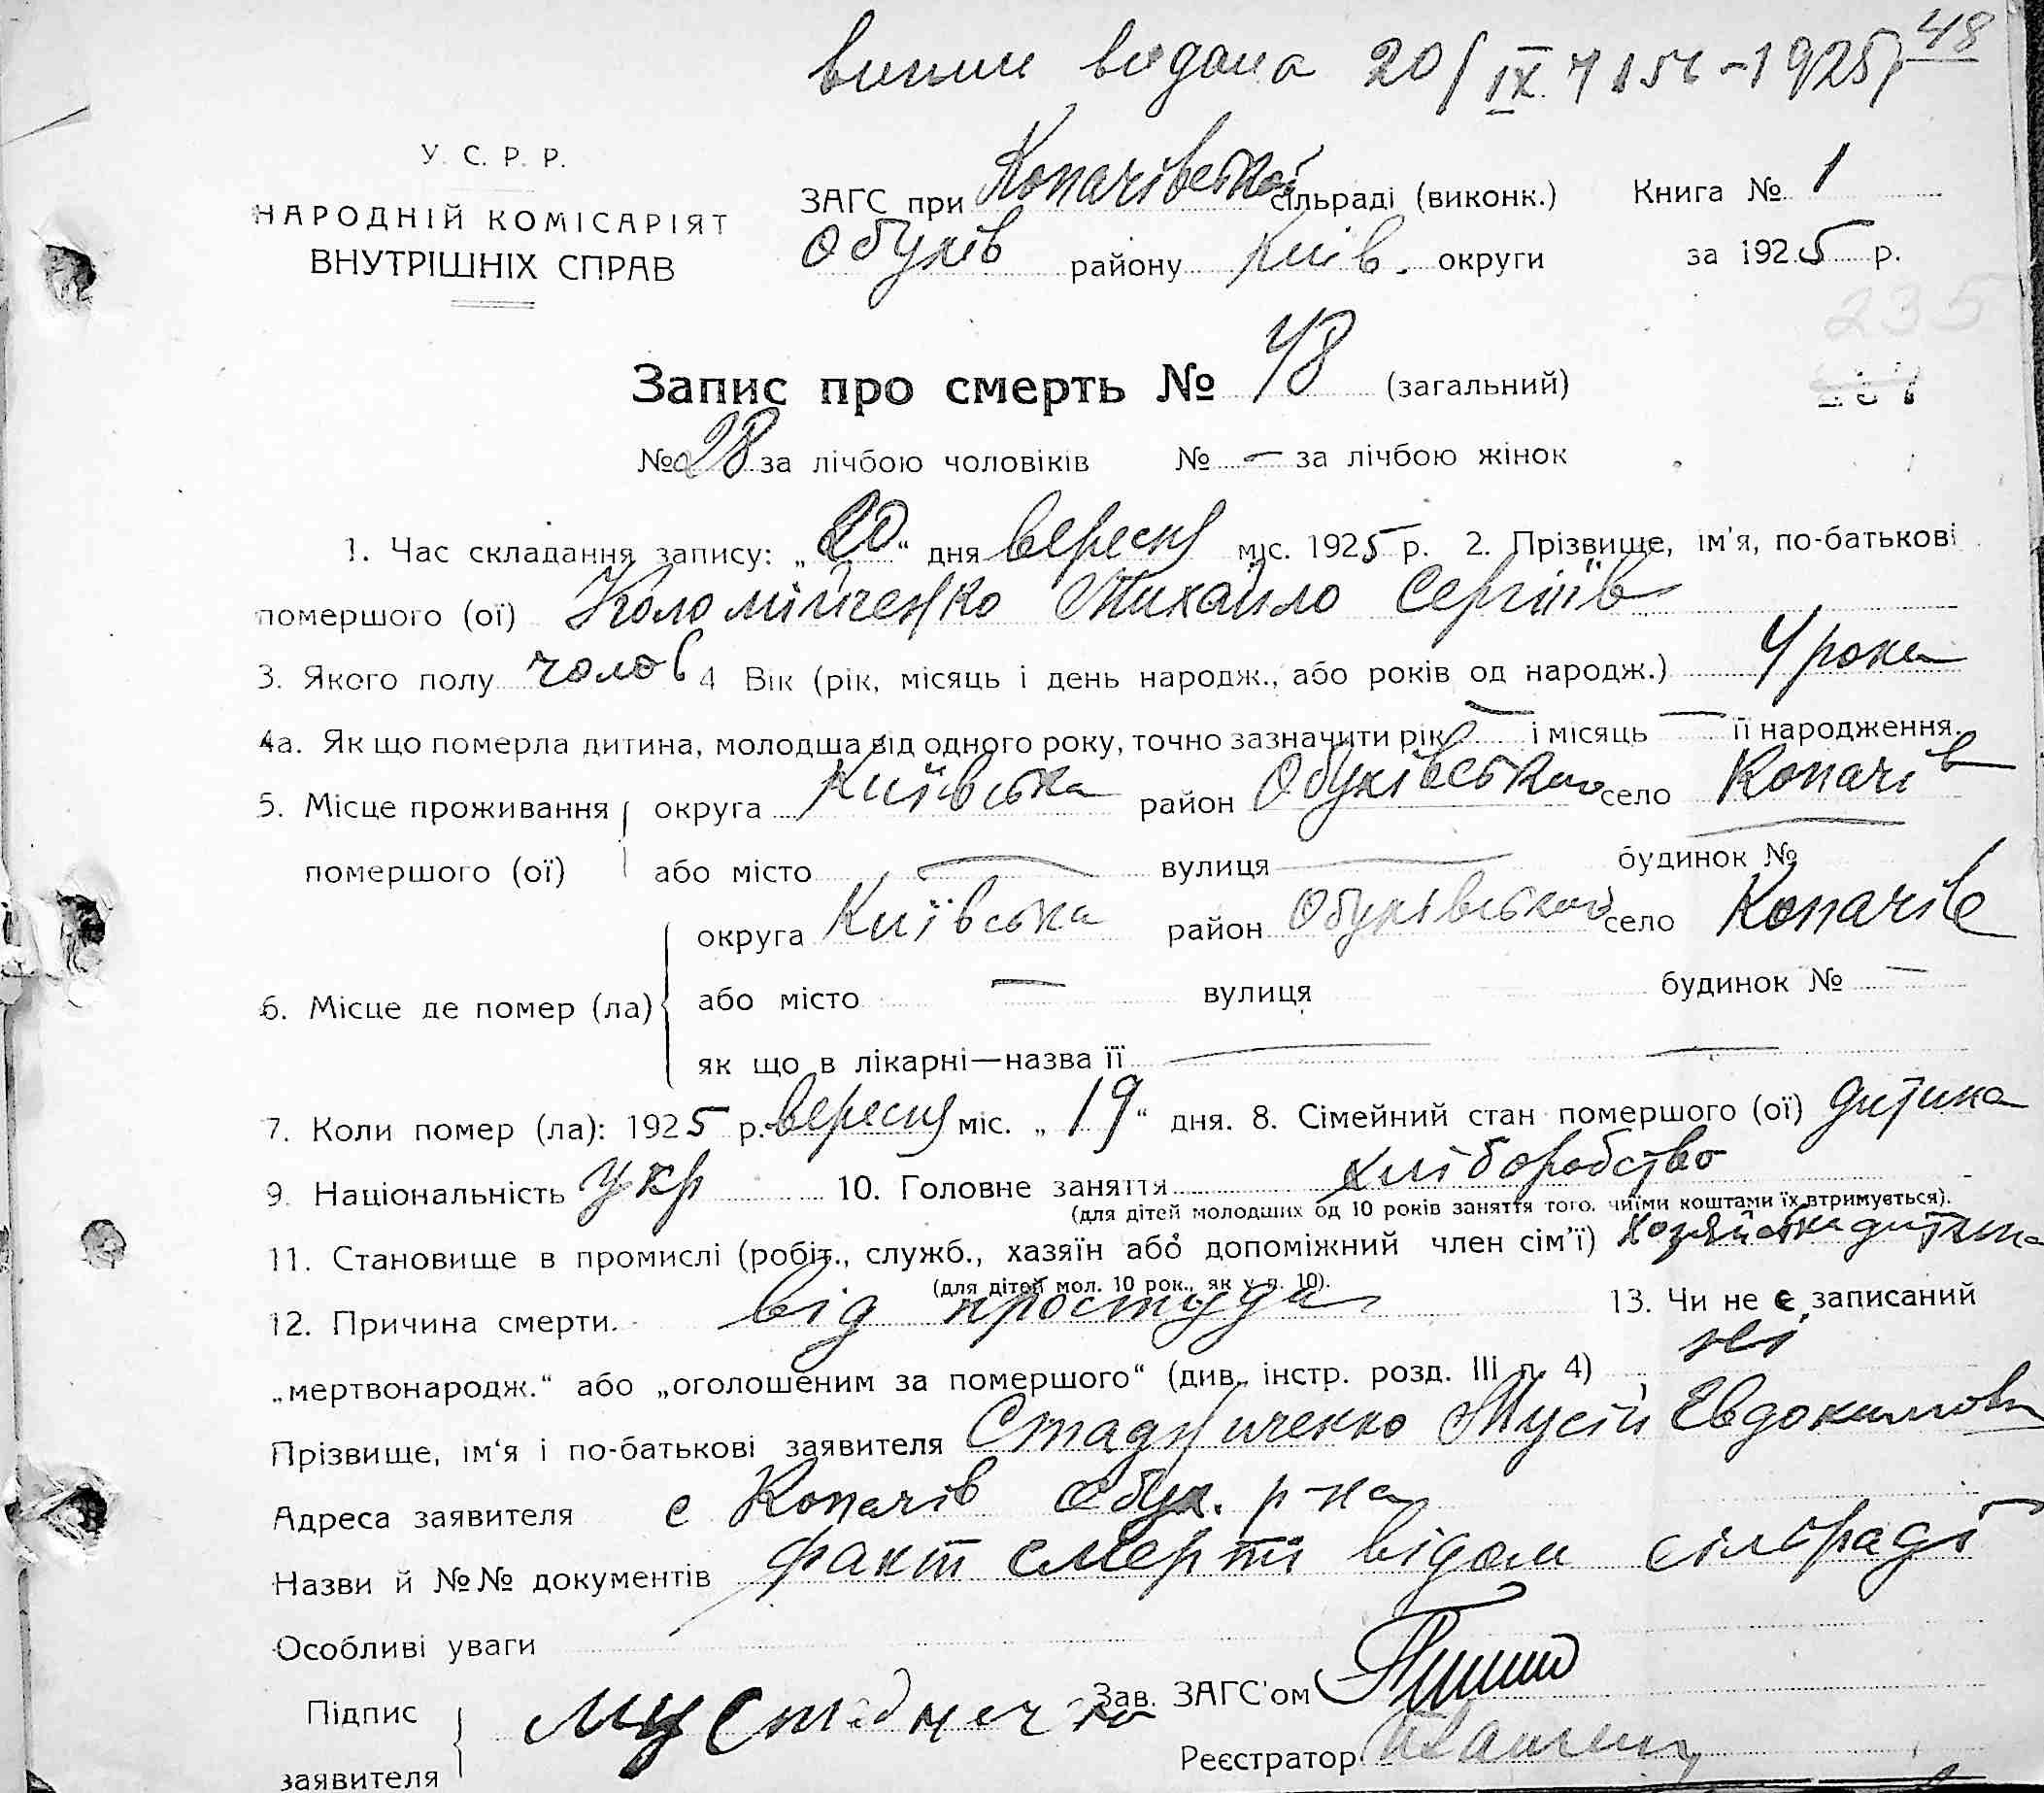 видана 20/IX 1925 48
У. С. Р. Р.
НАРОДНІЙ КОМІСАРІЯТ
ВНУТРІШНІХ СПРАВ
ЗАГС при Копачівській сільраді (виконк.) Книга № 1
Обухів району Київ. округи за 1925 р.
235
Запис про смерть № 48 (загальний)
№ 28 за лічбою чоловіків № — за лічбою жінок
1. Час складання запису: „20“ дня вересня міс. 1925 р. 2. Прізвище, ім'я, по-батькові
помершого (ої) Коломійченко Михайло Сергіїв
3. Якого полу чолов 4 Вік (рік, місяць і день народж., або років од народж.) 4 роки
4а. Як що померла дитина, молодша від одного року, точно зазначити рік — і місяць — її народження.
5. Місце проживання округа Київська район Обухівського село Копачів
помершого (ої) або місто — вулиця — будинок № —
округа Київська район Обухівського село Копачів
6. Місце де помер (ла) або місто — вулиця будинок № —
як що в лікарні—назва її — —
7. Коли помер (ла): 1925 р. вересня міс. „19“ дня. 8. Сімейний стан помершого (ої) дитина
9. Національність укр 10. Головне заняття хліборобство
(для дітей молодших од 10 років заняття того, чиїми коштами їх втримується).
11. Становище в промислі (робіт., служб., хазяїн або допоміжний член сім'ї) дитина
(для дітей мол. 10 рок., як у п. 10).
12. Причина смерти. від простуди 13. Чи не є записаний
„мертвонародж.“ або „оголошеним за помершого“ (див. інстр. розд. III п. 4) ні
Прізвище, ім'я і по-батькові заявителя Стадниченко Мусій Евдокимови
Адреса заявителя с Копачів Обух. р-на
Назви й №№ документів факт смерти відом сільраді
Особливі уваги
Підпис
заявителя
Зав. ЗАГС'ом
Реєстратор